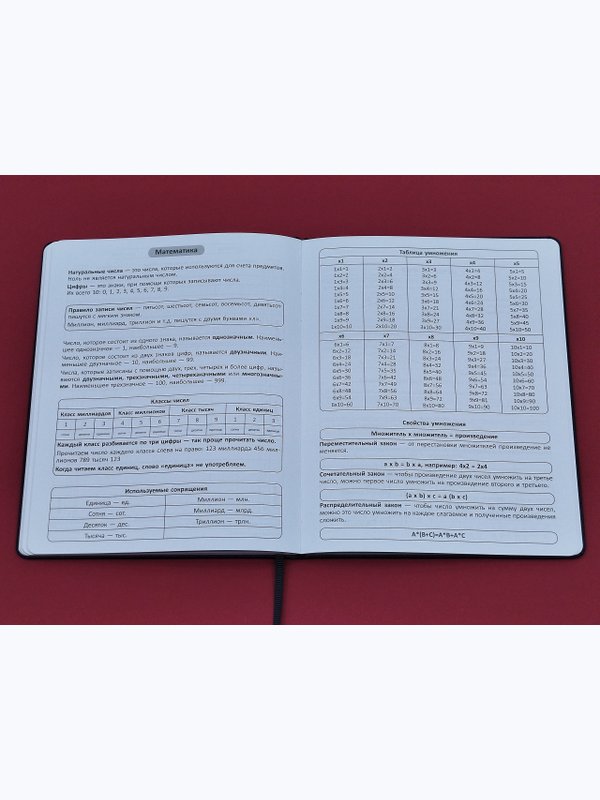 Математика
Натуральные числа — это числа, которые используются для счета предметов.
Ноль не является натуральным числом.
Цифры — это знаки, при помощи которых записывают числа.
Их всего 10: 0, 1, 2, 3, 4, 5, 6, 7, 8, 9.
Правило записи чисел — пятьсот, шестьсот, семьсот, восемьсот, девятьсот
пишутся с мягким знаком.
Миллион, миллиард, триллион и т.д. пишутся с двумя буквами «л».
Числа, которое состоит из одного знака, называется однозначным. Наимень-
шее однозначное — 1, наибольшее — 9.
Число, которое состоит из двух знаков цифр, называется двузначным. Наи-
меньшее двузначное — 10, наибольшее — 99.
Числа, записаны с помощью двух, трех, четырех и более цифр, назы-
ваются двузначными, трехзначными, четырехзначными или многозначны-
ми. Наименьшее трехзначное — 100, наибольшее — 999.
Классы чисел
Класс миллиардов Класс миллионов Класс тысяч Класс единиц
1 2 3 4 5 6 7 8 9 1 2 3
сотни десятки единицы сотни десятки единицы сотни десятки единицы сотни десятки единицы
Каждый класс разбивается по три цифры — так проще прочитать число.
Прочитаем число каждого класса слева на право: 123 миллиарда 456 мил-
лионов 789 тысяч 123
Когда читаем класс единиц, слово «единица» не употребляем.
Используемые сокращения
Единица — ед. Миллион — млн.
Сотни — сот. Миллиард — млрд.
Десяток — дес. Триллион — трлн.
Тысяча — тыс.
Таблица умножения
x1 x2 x3 x4 x5
1x1=1 2x1=2 3x1=3 4x1=4 5x1=5
1x2=2 2x2=4 3x2=6 4x2=8 5x2=10
1x3=3 2x3=6 3x3=9 4x3=12 5x3=15
1x4=4 2x4=8 3x4=12 4x4=16 5x4=20
1x5=5 2x5=10 3x5=15 4x5=20 5x5=25
1x6=6 2x6=12 3x6=18 4x6=24 5x6=30
1x7=7 2x7=14 3x7=21 4x7=28 5x7=35
1x8=8 2x8=16 3x8=24 4x8=32 5x8=40
1x9=9 2x9=18 3x9=27 4x9=36 5x9=45
1x10=10 2x10=20 3x10=30 4x10=40 5x10=50
x6 x7 x8 x9 x10
6x1=6 7x1=7 8x1=8 9x1=9 10x1=10
6x2=12 7x2=14 8x2=16 9x2=18 10x2=20
6x3=18 7x3=21 8x3=24 9x3=27 10x3=30
6x4=24 7x4=28 8x4=32 9x4=36 10x4=40
6x5=30 7x5=35 8x5=40 9x5=45 10x5=50
6x6=36 7x6=42 8x6=48 9x6=54 10x6=60
6x7=42 7x7=49 8x7=56 9x7=63 10x7=70
6x8=48 7x8=56 8x8=64 9x8=72 10x8=80
6x9=54 7x9=63 8x9=72 9x9=81 10x9=90
6x10=60 7x10=70 8x10=80 9x10=90 10x10=100
Свойства умножения
Множитель х множитель = произведение
Переместительный закон — от перестановки множителей произведение не
меняется.
a x b = b x a, например: 4x2 = 2x4
Сочетательный закон — чтобы произведение двух чисел умножить на третье
число, можно первое число умножить на произведение второго и третьего.
(a x b) x c = a (b x c)
Распределительный закон — чтобы число умножить на сумму двух чисел,
можно это число умножить на каждое слагаемое и полученные произведения
сложить.
A*(B+C)=A*B+A*C